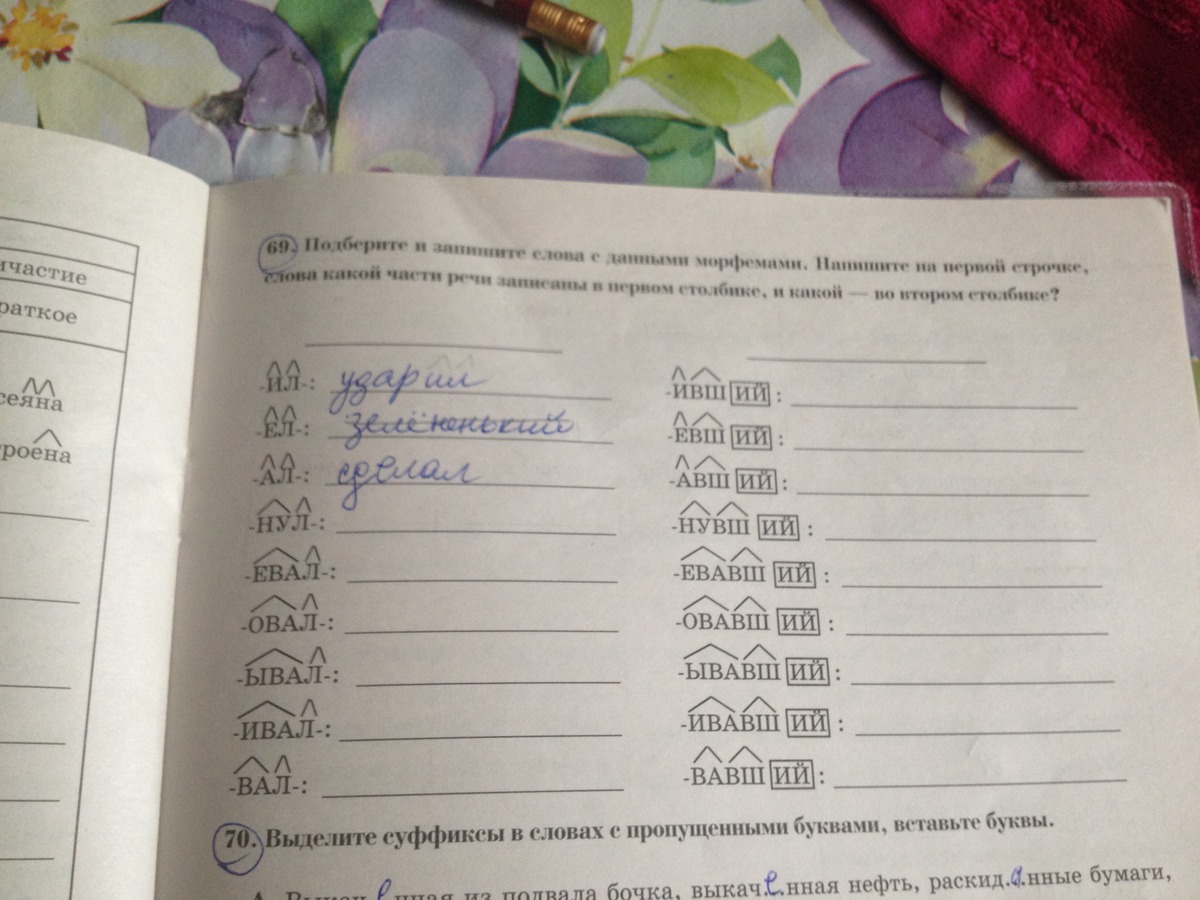 ичастие
раткое
сеяна
роена
69. Подберите и запишите слова с данными морфемами. Напишите на первой строчке,
слова какой части речи записаны в первом столбике, и какой — во втором столбике?
-ИЛ-: ударил
-ЕЛ-: зелёненький
-АЛ-: сделал
-НУЛ-:
-ЕВАЛ-:
-ОВАЛ-:
-ЫВАЛ-:
-ИВАЛ-:
-ВАЛ-:
-ИВШ ИЙ :
-ЕВШ ИЙ :
-АВШ ИЙ :
-НУВШ ИЙ :
-ЕВАВШ ИЙ :
-ОВАВШ ИЙ :
-ЫВАВШ ИЙ :
-ИВАВШ ИЙ :
-ВАВШ ИЙ :
70. Выделите суффиксы в словах с пропущенными буквами, вставьте буквы.
из подвала бочка, выкач.е.нная нефть, раскид.а.нные бумаги,